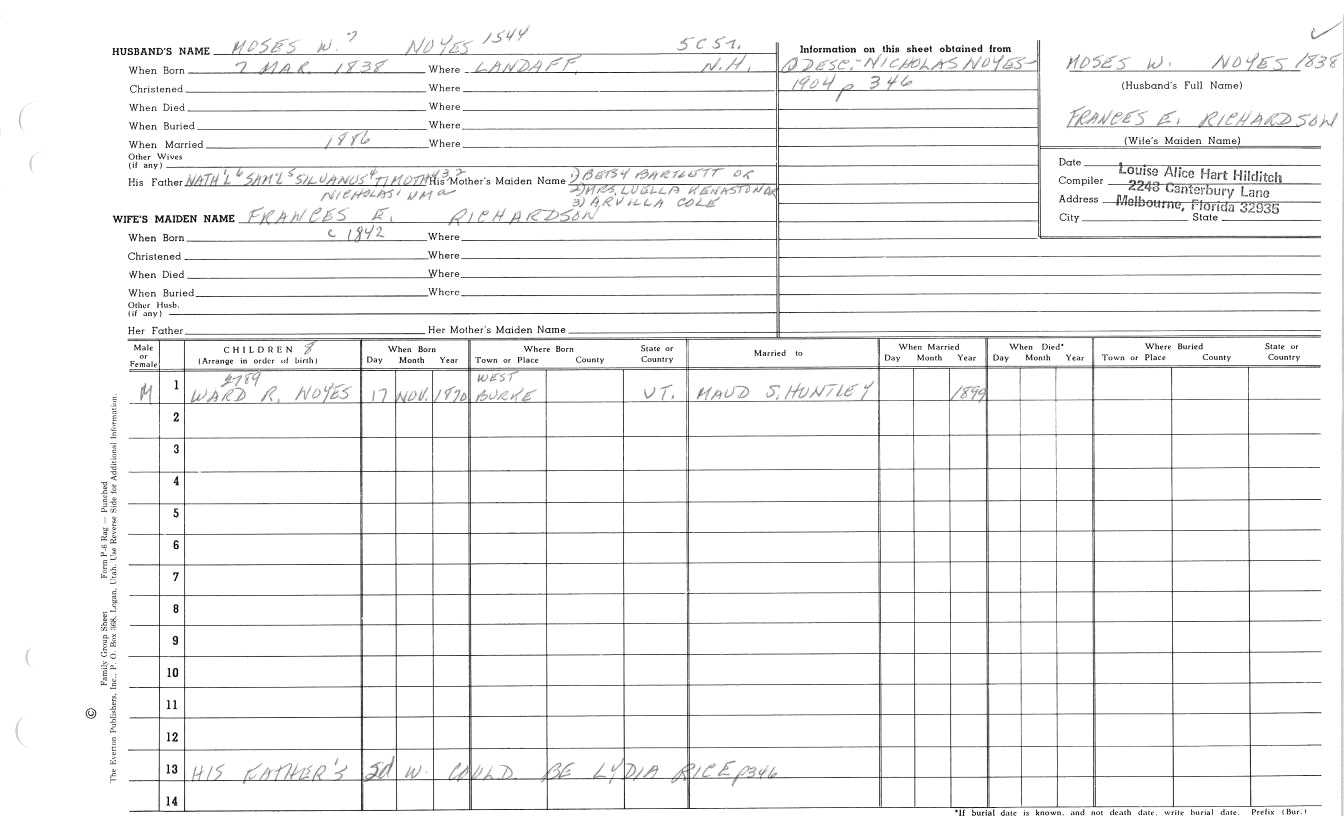 HUSBAND'S NAME MOSES W. 7 NOYES 1544 5C57.
When Born 7 MAR. 1838 Where LANDAFF, N.H.
Christened Where
When Died Where
When Buried Where
When Married 1886 Where
Other Wives
(if any)
His Father NATH'L 6 SAM'L 5 SILVANUS 4 TIMOTHY 3,2 His Mother's Maiden Name 1) BETSY BARTLETT OR
NICHOLAS 1 WMa 2) MRS. LUELLA KENASTON OR
3) ARVILLA COLE
WIFE'S MAIDEN NAME FRANCES E. RICHARDSON
When Born C 1842 Where
Christened Where
When Died Where
When Buried Where
Other Husb.
(if any)
Her Father Her Mother's Maiden Name
Information on this sheet obtained from
DESC.-NICHOLAS NOYES-
1904 p 346
MOSES W. NOYES 1838
(Husband's Full Name)
FRANCES E. RICHARDSON
(Wife's Maiden Name)
Date
Compiler Louise Alice Hart Hilditch
Address 2243 Canterbury Lane
Melbourne, Florida 32935
City State
Male or Female
CHILDREN 8
(Arrange in order of birth)
When Born
Day Month Year
Where Born
Town or Place County
State or Country
Married to
When Married
Day Month Year
When Died*
Day Month Year
Where Buried
Town or Place County
State or Country
2789 WEST
M 1 WARD R. NOYES 17 NOV. 1870 BURKE VT. MAUD S. HUNTLEY 1899
2
3
4
5
6
7
8
9
10
11
12
13 HIS FATHER'S 3d W. COULD BE LYDIA RICE p346
14
*If burial date is known, and not death date, write burial date. Prefix (Bur.)
Family Group Sheet Form P-8 Rag — Punched
© The Everton Publishers, Inc., P. O. Box 368, Logan, Utah. Use Reverse Side for Additional Information.